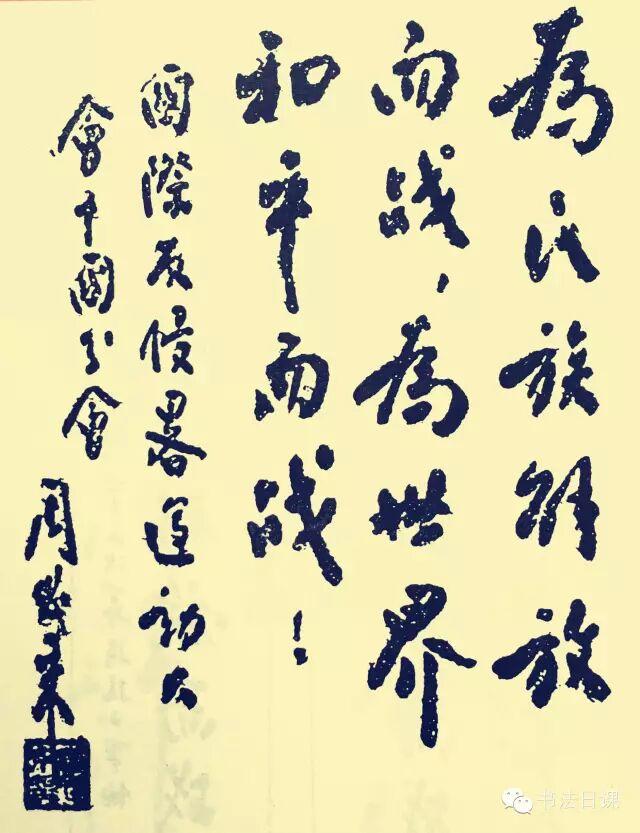 為民族解放
而战，為世界
和平而战！
國際反侵畧運動大
會中國分會
周恩来
书法日课